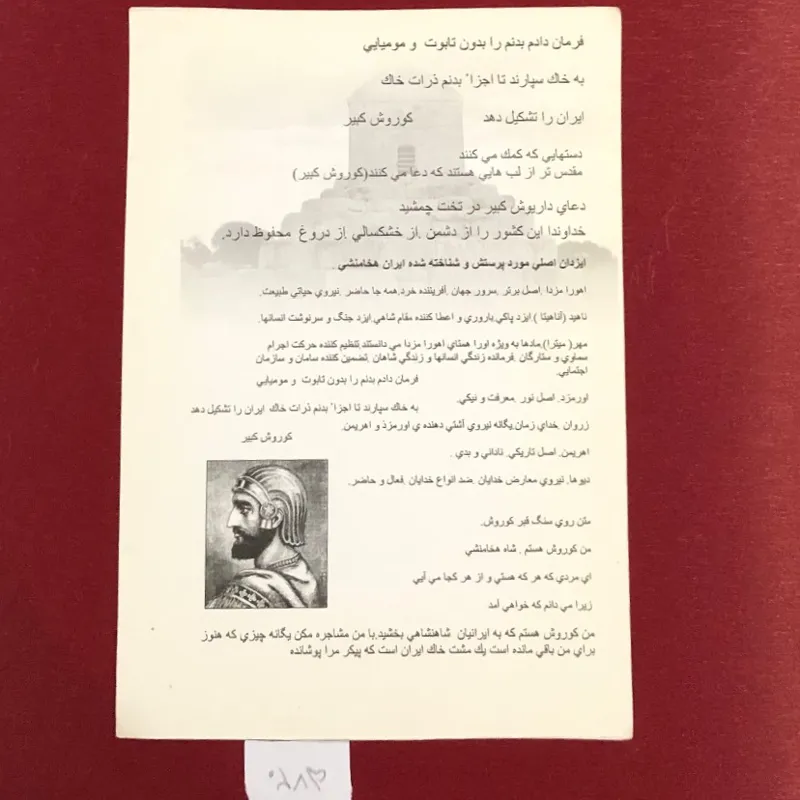 فرمان دادم بدنم را بدون تابوت و موميايي
به خاك سپارند تا اجزاء بدنم ذرات خاك
ايران را تشكيل دهد كوروش كبير
دستهايي كه كمك مي كنند
مقدس تر از لب هايي هستند كه دعا مي كنند(كوروش كبير)
دعاي داريوش كبير در تخت جمشيد
خداوندا اين كشور را از دشمن .از خشكسالي .از دروغ محفوظ دارد.
ايزدان اصلي مورد پرستش و شناخته شده ايران هخامنشي .
اهورا مزدا .اصل برتر .سرور جهان .آفريننده خرد.همه جا حاضر .نيروي حياتي طبيعت.
ناهيد (آناهيتا ) ايزد پاكي.باروري و اعطا كننده مقام شاهي.ايزد جنگ و سرنوشت انسانها.
مهر( ميترا).مادها به ويژه اورا همتاي اهورا مزدا مي دانستند.تنظيم كننده حركت اجرام
سماوي و ستارگان .فرمانده زندگي انسانها و زندگي شاهان .تضمين كننده سامان و سازمان
اجتمايي.
فرمان دادم بدنم را بدون تابوت و موميايي
اورمزد. اصل نور .معرفت و نيكي.
به خاك سپارند تا اجزاء بدنم ذرات خاك ايران را تشكيل دهد
زروان .خداي زمان.يگانه نيروي آشتي دهنده ي اورمزد و اهريمن.
كوروش كبير
اهريمن. اصل تاريكي. ناداني و بدي .
ديوها. نيروي معارض خدايان .ضد انواع خدايان .فعال و حاضر.
متن روي سنگ قبر كوروش.
من كوروش هستم . شاه هخامنشي
اي مردي كه هر كه هستي و از هر كجا مي آيي
زيرا مي دانم كه خواهي آمد
من كوروش هستم كه به ايرانيان شاهنشاهي بخشيد.با من مشاجره مكن يگانه چيزي كه هنوز
براي من باقي مانده است يك مشت خاك ايران است كه پيكر مرا پوشانده